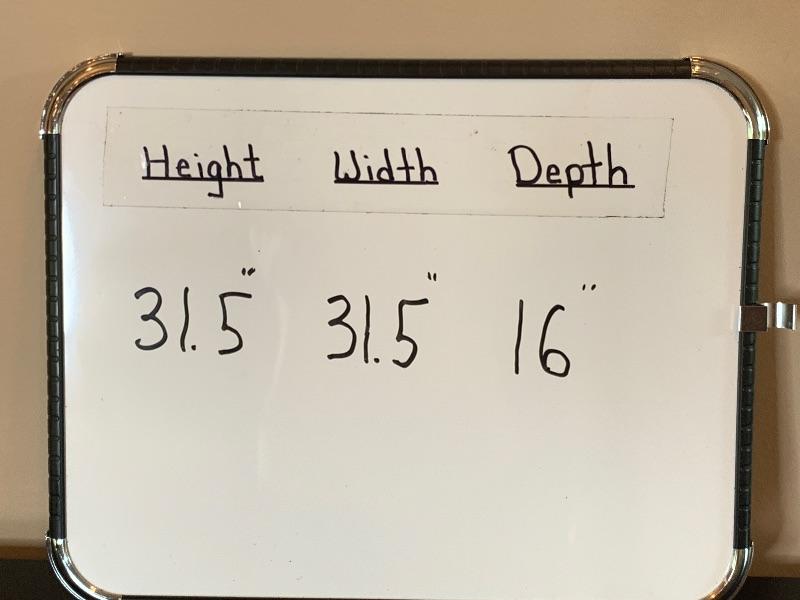 Height Width Depth
31.5" 31.5" 16"